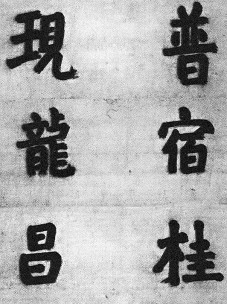 普宿桂
現龍昌